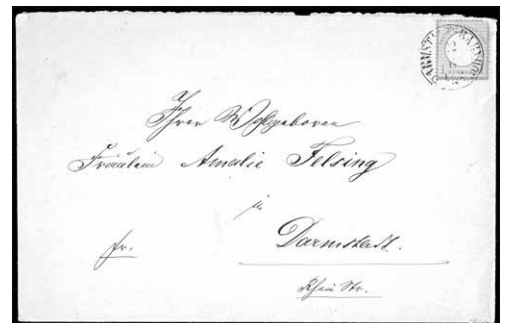 DARMSTADT BAHNHOF
Ihrer Wohlgeboren
Fräulein Amalie Felsing
in
fr.
Darmstadt.
Rhein Str.